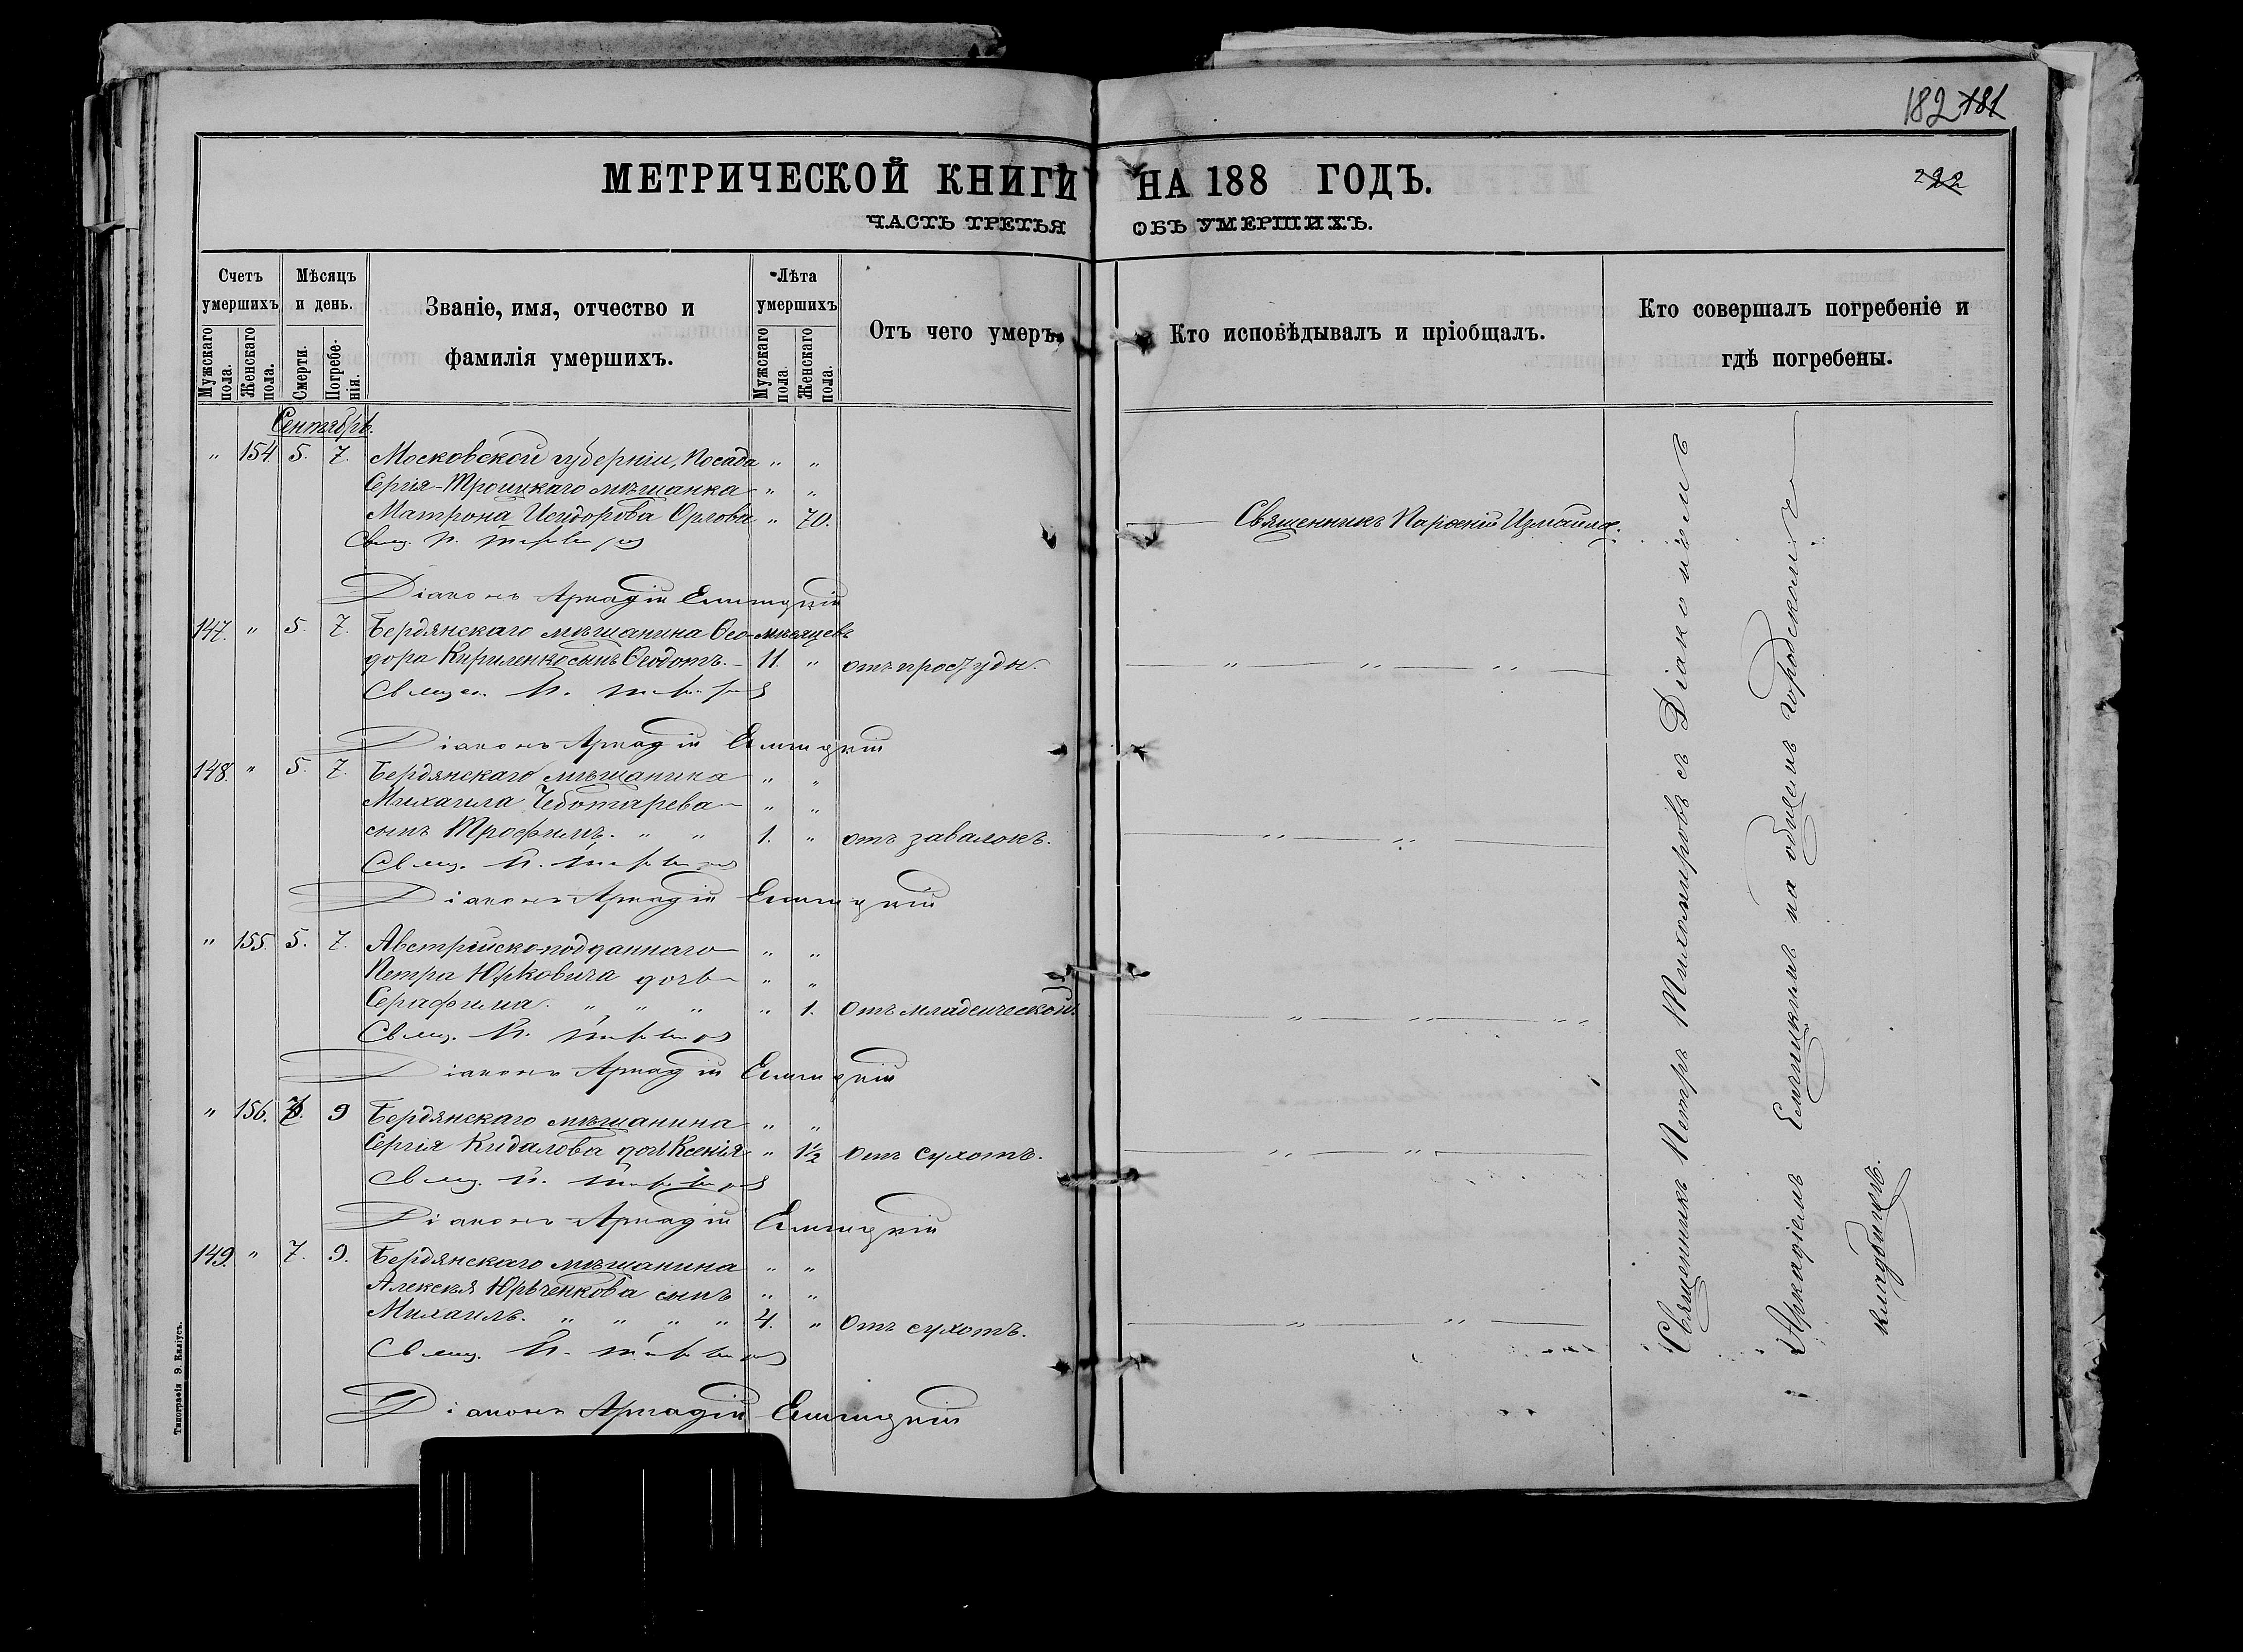 182 181
222
МЕТРИЧЕСКОЙ КНИГИ НА 188 ГОДЪ.
ЧАСТЬ ТРЕТЬЯ ОБЪ УМЕРШИХЪ.
Счетъ умершихъ
Мужскаго пола.
Женскаго пола.
Мѣсяцъ и день.
Смерти.
Погребенія.
Званіе, имя, отчество и
фамилія умершихъ.
Лѣта умершихъ
Мужскаго пола.
Женскаго пола.
Отъ чего умеръ.
Кто исповѣдывалъ и пріобщалъ.
Кто совершалъ погребеніе и
гдѣ погребены.
Сентябрь.
" 154 5. 7. Московской губерніи, Посада " "
Сергія-Троицкаго мѣщанка " "
Матрона Исидорова Орлова " 70. Священникъ Парѳеній Измаилов.
Свящ. П.
Діаконъ Аркадій Емницкій
147. " 5. 7. Бердянскаго мѣщанина Ѳео- мѣсяцевъ
дора Кириленко сынъ Ѳеодотъ. 11. " отъ простуды. " " "
Свящ. П.
Діаконъ Аркадій Емницкій
148. " 5. 7. Бердянскаго мѣщанина " "
Михаила Чеботарева " "
сынъ Трофимъ. " " 1. " отъ завалокъ. " "
Свящ. П.
Діаконъ Аркадій Емницкій
" 155. 5. 7. Австрійско-подданнаго " "
Петра Юрковича дочь " "
Серафима. " " " " 1. Отъ младенческой. " " "
Свящ. П.
Діаконъ Аркадій Емницкій
" 156. 7. 9 Бердянскаго мѣщанина " "
Сергія Кидалова дочь Ксенія " 1½ отъ сухотъ. " "
Свящ. П.
Діаконъ Аркадій Емницкій
149. " 7. 9. Бердянскаго мѣщанина " "
Алексѣя Юрьченкова сынъ " "
Михаилъ. " " " " 4. " Отъ сухотъ. " "
Свящ. П.
Діаконъ Аркадій Емницкій
Священникъ Петръ Тихомировъ съ Діакономъ
Аркадіемъ Емницкимъ на общемъ городскомъ
кладбищѣ.
Типографія Э. Киліусъ.